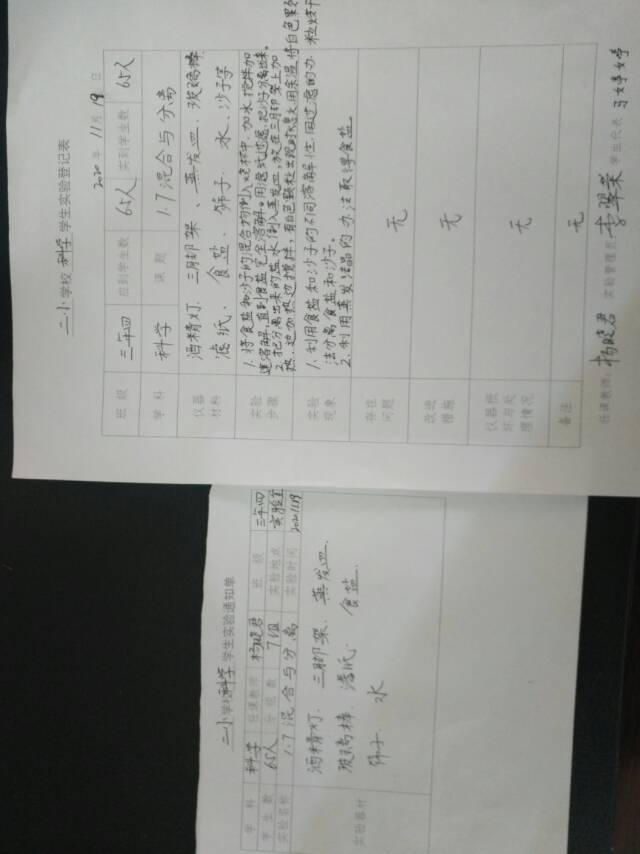 二小学校科学学生实验登记表
2020年11月19日
班级 三年四 应到学生数 65人 实到学生数 65人
学科 科学 课题 1.7混合与分离
仪器材料 酒精灯、三脚架、蒸发皿、玻璃棒
滤纸、食盐、筛子、水、沙子等
实验步骤 1.将食盐和沙子的混合物倒入烧杯中,加水,搅拌加
速溶解,直到食盐完全溶解。用滤纸过滤,把沙子分离出来。
2.把分离出来的盐水倒入蒸发皿,放在三脚架上加
热,边加热边搅拌,有白色颗粒出现时熄火用余温将白色颗
粒烘干
实验现象 1.利用食盐和沙子的不同溶解性,用过滤的办
法分离食盐和沙子。
2.利用蒸发结晶的办法取得食盐
存在问题 无
改进措施 无
仪器损坏与处理情况 无
备注 无
任课教师:杨晓君 实验管理员 李翠荣 学生代表 马婷婷
二小学校科学学生实验通知单
学科 科学 任课教师 杨晓君 班级 三年四
学生数 65人 分组数 7组 实验地点 实验室
实验名称 1.7混合与分离 实验时间 2020.11.19
实验器材 酒精灯、三脚架、蒸发皿、
玻璃棒、滤纸、食盐、
筛子、水